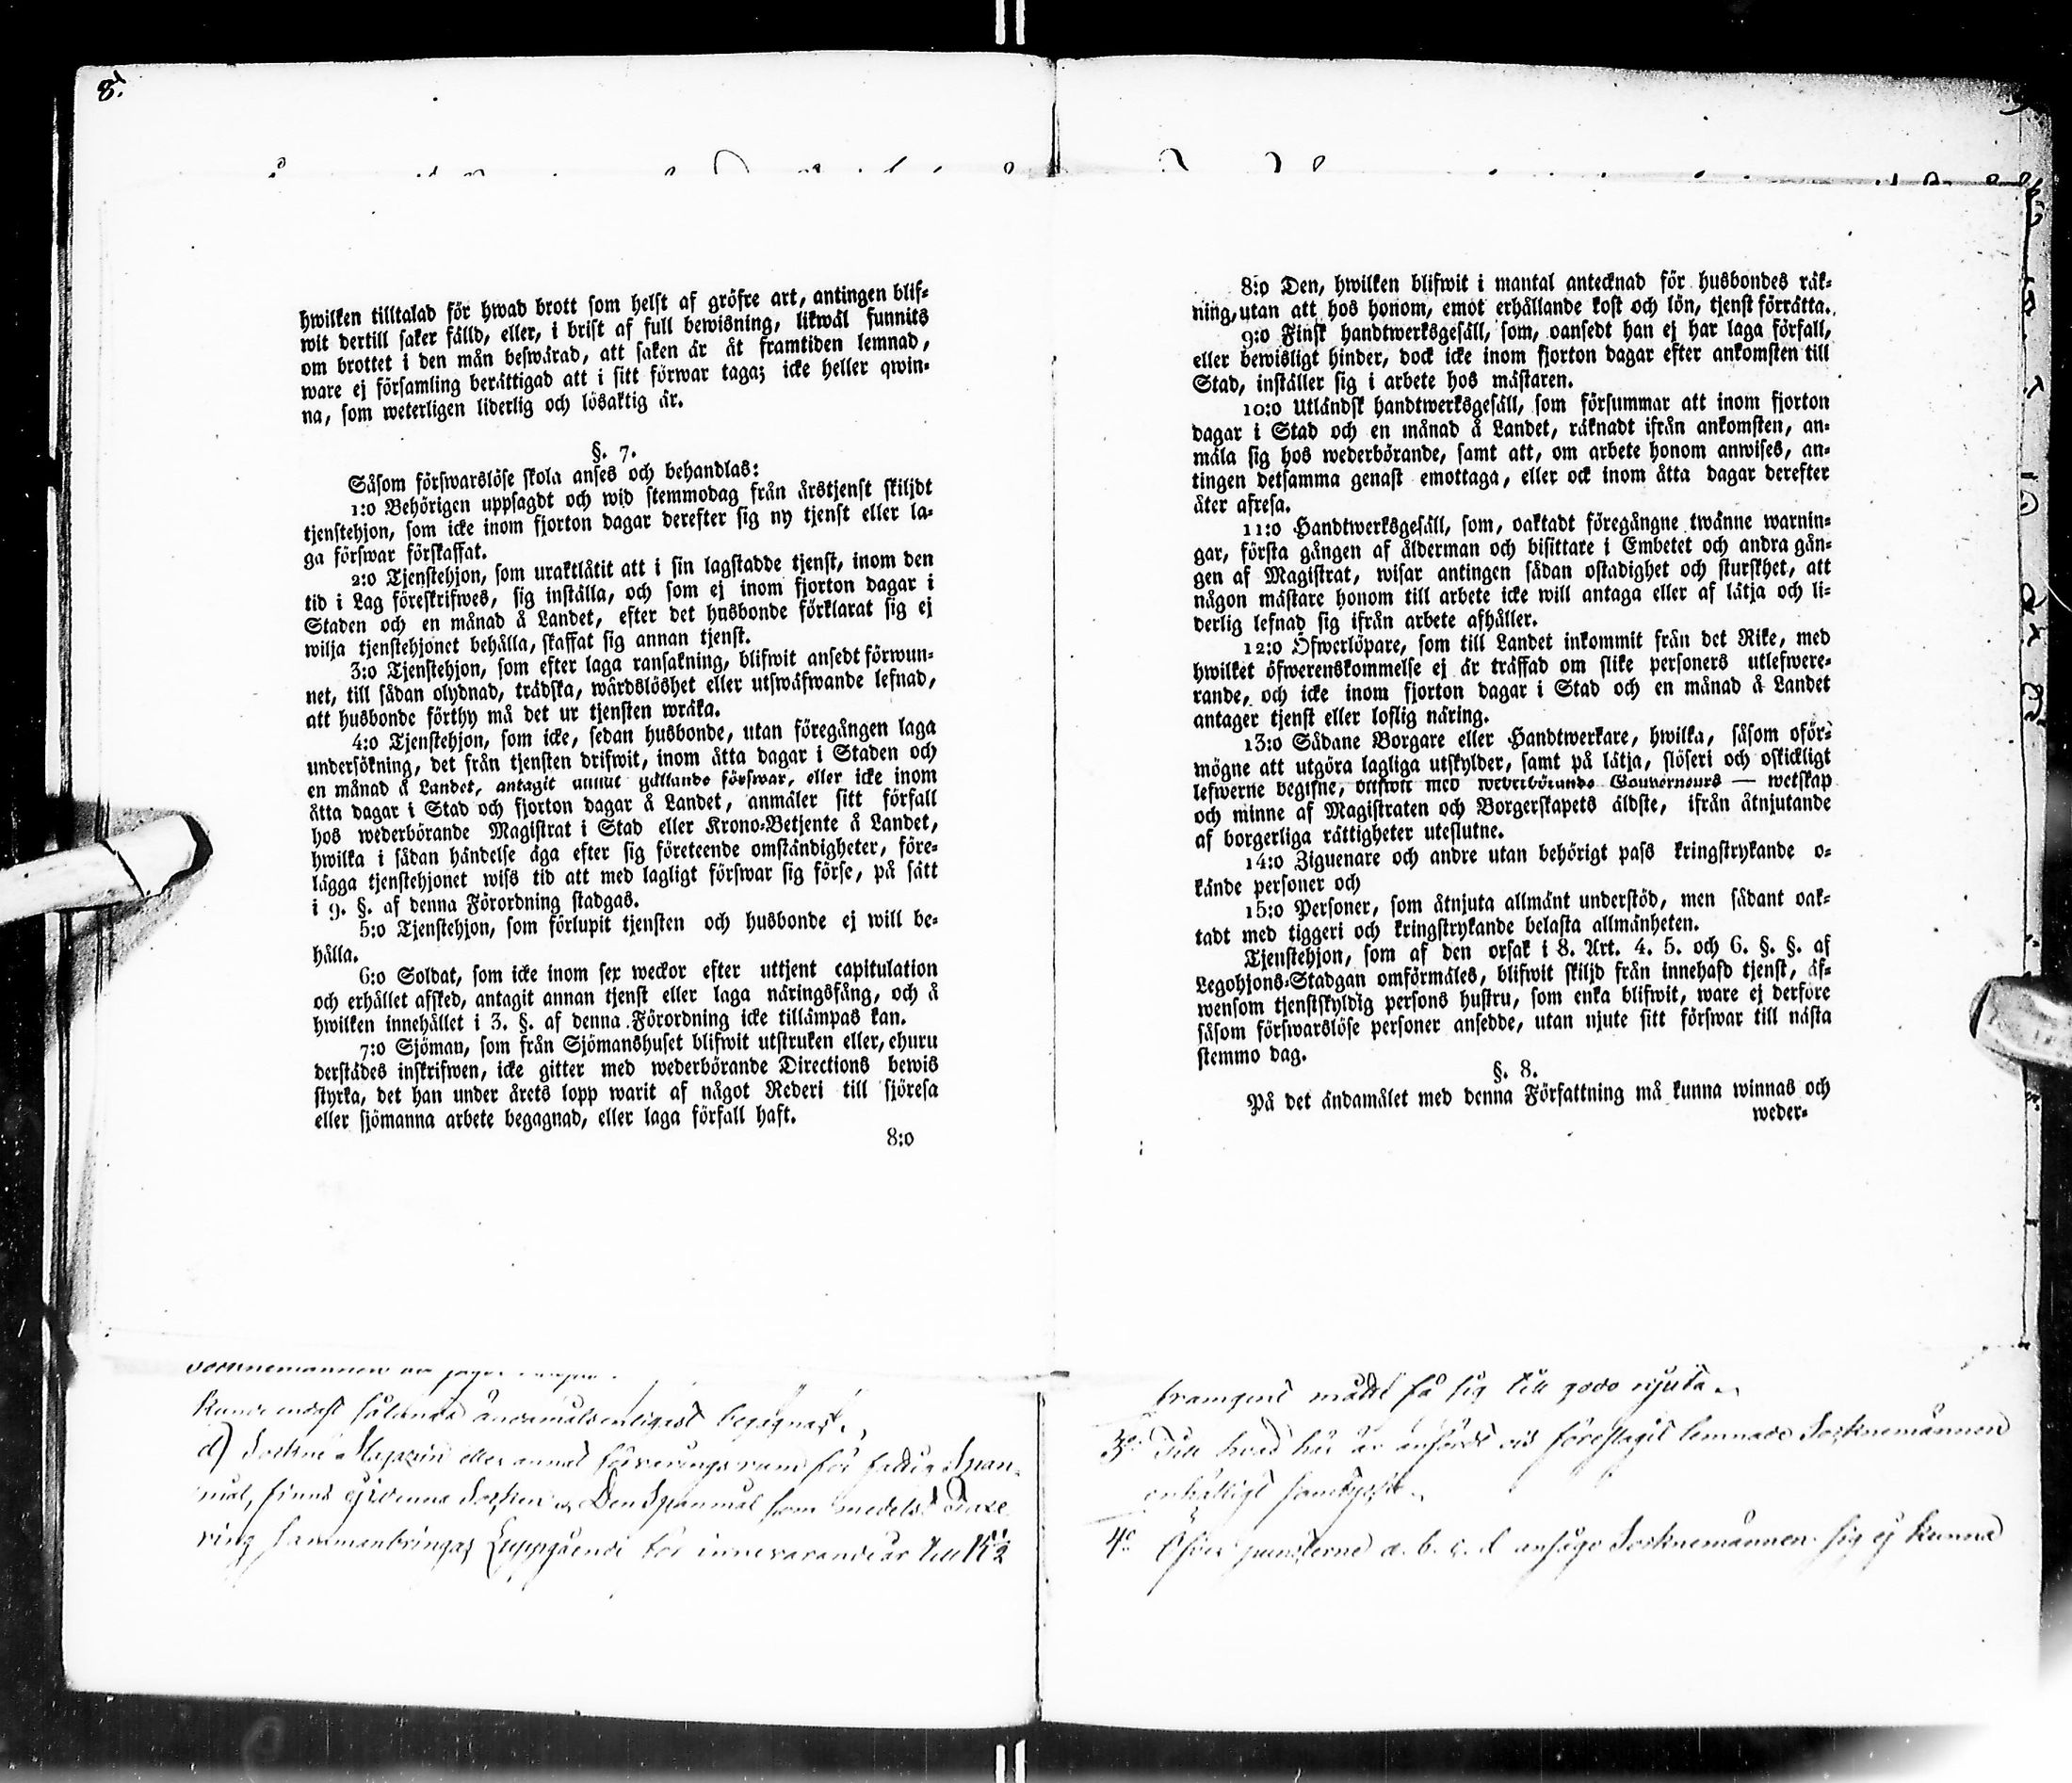 8.
hwilken tilltalad för hwad brott som helst af gröfre art, antingen blif-
wit dertill saker fälld, eller, i brist af full bewisning, likwäl funnits
om brottet i den mån beswärad, att saken är åt framtiden lemnad,
ware ej församling berättigad att i sitt förwar taga; icke heller qwin-
na, som weterligen liderlig och lösaktig är.
§. 7.
Såsom förswarslöse skola anses och behandlas:
1:o Behörigen uppsagdt och wid stemmodag från årstjenst skiljdt
tjenstehjon, som icke inom fjorton dagar derefter sig ny tjenst eller la-
ga förswar förskaffat.
2:o Tjenstehjon, som uraktlåtit att i sin lagstadde tjenst, inom den
tid i Lag föreskrifwes, sig inställa, och som ej inom fjorton dagar i
Staden och en månad å Landet, efter det husbonde förklarat sig ej
wilja tjenstehjonet behålla, skaffat sig annan tjenst.
3:o Tjenstehjon, som efter laga ransakning, blifwit ansedt förwun-
net, till sådan olydnad, trädska, wårdslöshet eller utswäfwande lefnad,
att husbonde förthy må det ur tjensten wräka.
4:o Tjenstehjon, som icke, sedan husbonde, utan föregången laga
undersökning, det från tjensten drifwit, inom åtta dagar i Staden och
en månad å Landet, antagit annat gällande förswar, eller icke inom
åtta dagar i Stad och fjorton dagar å Landet, anmäler sitt förfall
hos wederbörande Magistrat i Stad eller Krono-Betjente å Landet,
hwilka i sådan händelse äga efter sig företeende omständigheter, före-
lägga tjenstehjonet wiss tid att med lagligt förswar sig förse, på sätt
i 9. §. af denna Förordning stadgas.
5:o Tjenstehjon, som förlupit tjensten och husbonde ej will be-
hålla.
6:o Soldat, som icke inom sex weckor efter uttjent capitulation
och erhållet afsked, antagit annan tjenst eller laga näringsfång, och å
hwilken innehållet i 3. §. af denna Förordning icke tillämpas kan.
7:o Sjöman, som från Sjömanshuset blifwit utstruken eller, ehuru
derstädes inskrifwen, icke gitter med wederbörande Directions bewis
styrka, det han under årets lopp warit af något Rederi till sjöresa
eller sjömanna arbete begagnad, eller laga förfall haft.
8:o
kunde endast sålunda ändamålsenligast begagnas.
d) Sockne Magazin eller annat förvaringsrum för fattig Span-
mål, finns ej i denna Socken. Den Spanmål som medelst Taxe
ring sammanbringas uppgående för innevarande år till 15½
8:o Den, hwilken blifwit i mantal antecknad för husbondes räk-
ning, utan att hos honom, emot erhållande kost och lön, tjenst förrätta.
9:o Finsk handtwerksgesäll, som, oansedt han ej har laga förfall,
eller bewisligt hinder, dock icke inom fjorton dagar efter ankomsten till
Stad, inställer sig i arbete hos mästaren.
10:o Utländsk handtwerksgesäll, som försummar att inom fjorton
dagar i Stad och en månad å Landet, räknadt ifrån ankomsten, an-
mäla sig hos wederbörande, samt att, om arbete honom anwises, an-
tingen detsamma genast emottaga, eller ock inom åtta dagar derefter
åter afresa.
11:o Handtwerksgesäll, som, oaktadt föregångne twänne warnin-
gar, första gången af ålderman och bisittare i Embetet och andra gån-
gen af Magistrat, wisar antingen sådan ostadighet och sturskhet, att
någon mästare honom till arbete icke will antaga eller af lätja och li-
derlig lefnad sig ifrån arbete afhåller.
12:o Öfwerlöpare, som till Landet inkommit från det Rike, med
hwilket öfwerenskommelse ej är träffad om slike personers utlefwere-
rande, och icke inom fjorton dagar i Stad och en månad å Landet
antager tjenst eller loflig näring.
13:o Sådane Borgare eller Handtwerkare, hwilka, såsom oför-
mögne att utgöra lagliga utskylder, samt på lätja, slöseri och oskickligt
lefwerne begifne, blifwit med wederbörande Gouverneurs — wetskap
och minne af Magistraten och Borgerskapets äldste, ifrån åtnjutande
af borgerliga rättigheter uteslutne.
14:o Ziguenare och andre utan behörigt pass kringstrykande o-
kände personer och
15:o Personer, som åtnjuta allmänt understöd, men sådant oak-
tadt med tiggeri och kringstrykande belasta allmänheten.
Tjenstehjon, som af den orsak i 8. Art. 4. 5. och 6. §. §. af
Legohjons-Stadgan omförmäles, blifwit skiljd från innehafd tjenst, äf-
wensom tjenstskyldig persons hustru, som enka blifwit, ware ej derföre
såsom förswarslöse personer ansedde, utan njute sitt förswar till nästa
stemmo dag.
§. 8.
På det ändamålet med denna Författning må kunna winnas och
weder-
måtte få sig till godo njuta.
3o Till hvad här är anfördt och föreslagit lemnade Socknemännen
enhälligt samtycke.
4o Öfver puncterne a. b. c. d ansågo Socknemännen sig ej kunna